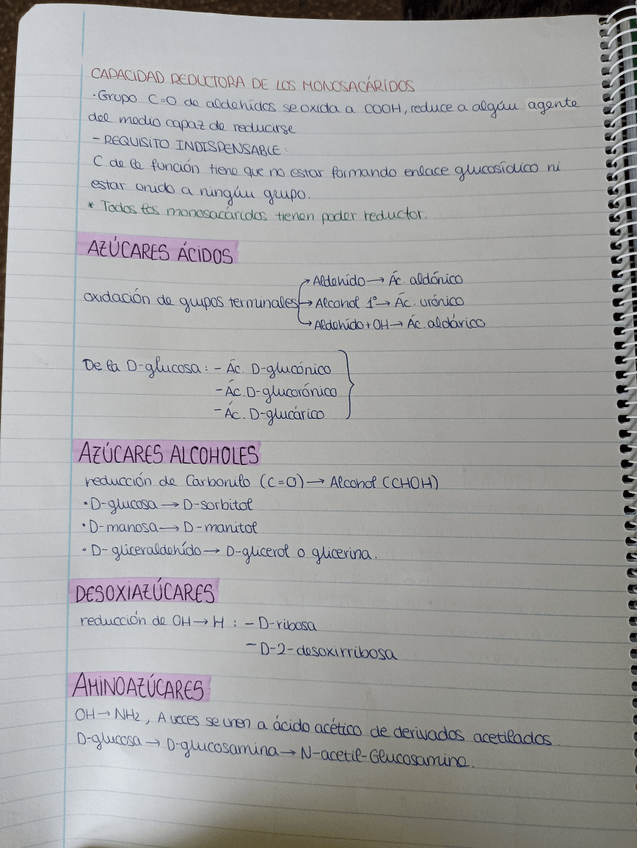 CAPACIDAD REDUCTORA DE LOS MONOSACÁRIDOS
·Grupo C=O de aldehídos se oxida a COOH, reduce a algún agente
del medio capaz de reducirse
- REQUISITO INDISPENSABLE:
C de la función tiene que no estar formando enlace glucosídico ni
estar unido a ningún grupo.
* Todos los monosacáridos tienen poder reductor.
AZÚCARES ÁCIDOS
oxidación de grupos terminales → Aldehído → Ác aldónico
→ Alcohol 1º → Ác. urónico
→ Aldehído + OH → Ác. aldárico
De la D-glucosa: - Ác. D-glucónico
- Ác. D-glucorónico
- Ác. D-glucárico
AZÚCARES ALCOHOLES
reducción de Carbonilo (C=O) → Alcohol (CHOH)
·D-glucosa → D-sorbitol
·D-manosa → D-manitol
·D-gliceraldehído → D-glicerol o glicerina.
DESOXIAZÚCARES
reducción de OH → H : - D-ribosa
- D-2-desoxirribosa
AMINOAZÚCARES
OH → NH2, A veces se unen a ácido acético de derivados acetilados.
D-glucosa → D-glucosamina → N-acetil-Glucosamina.